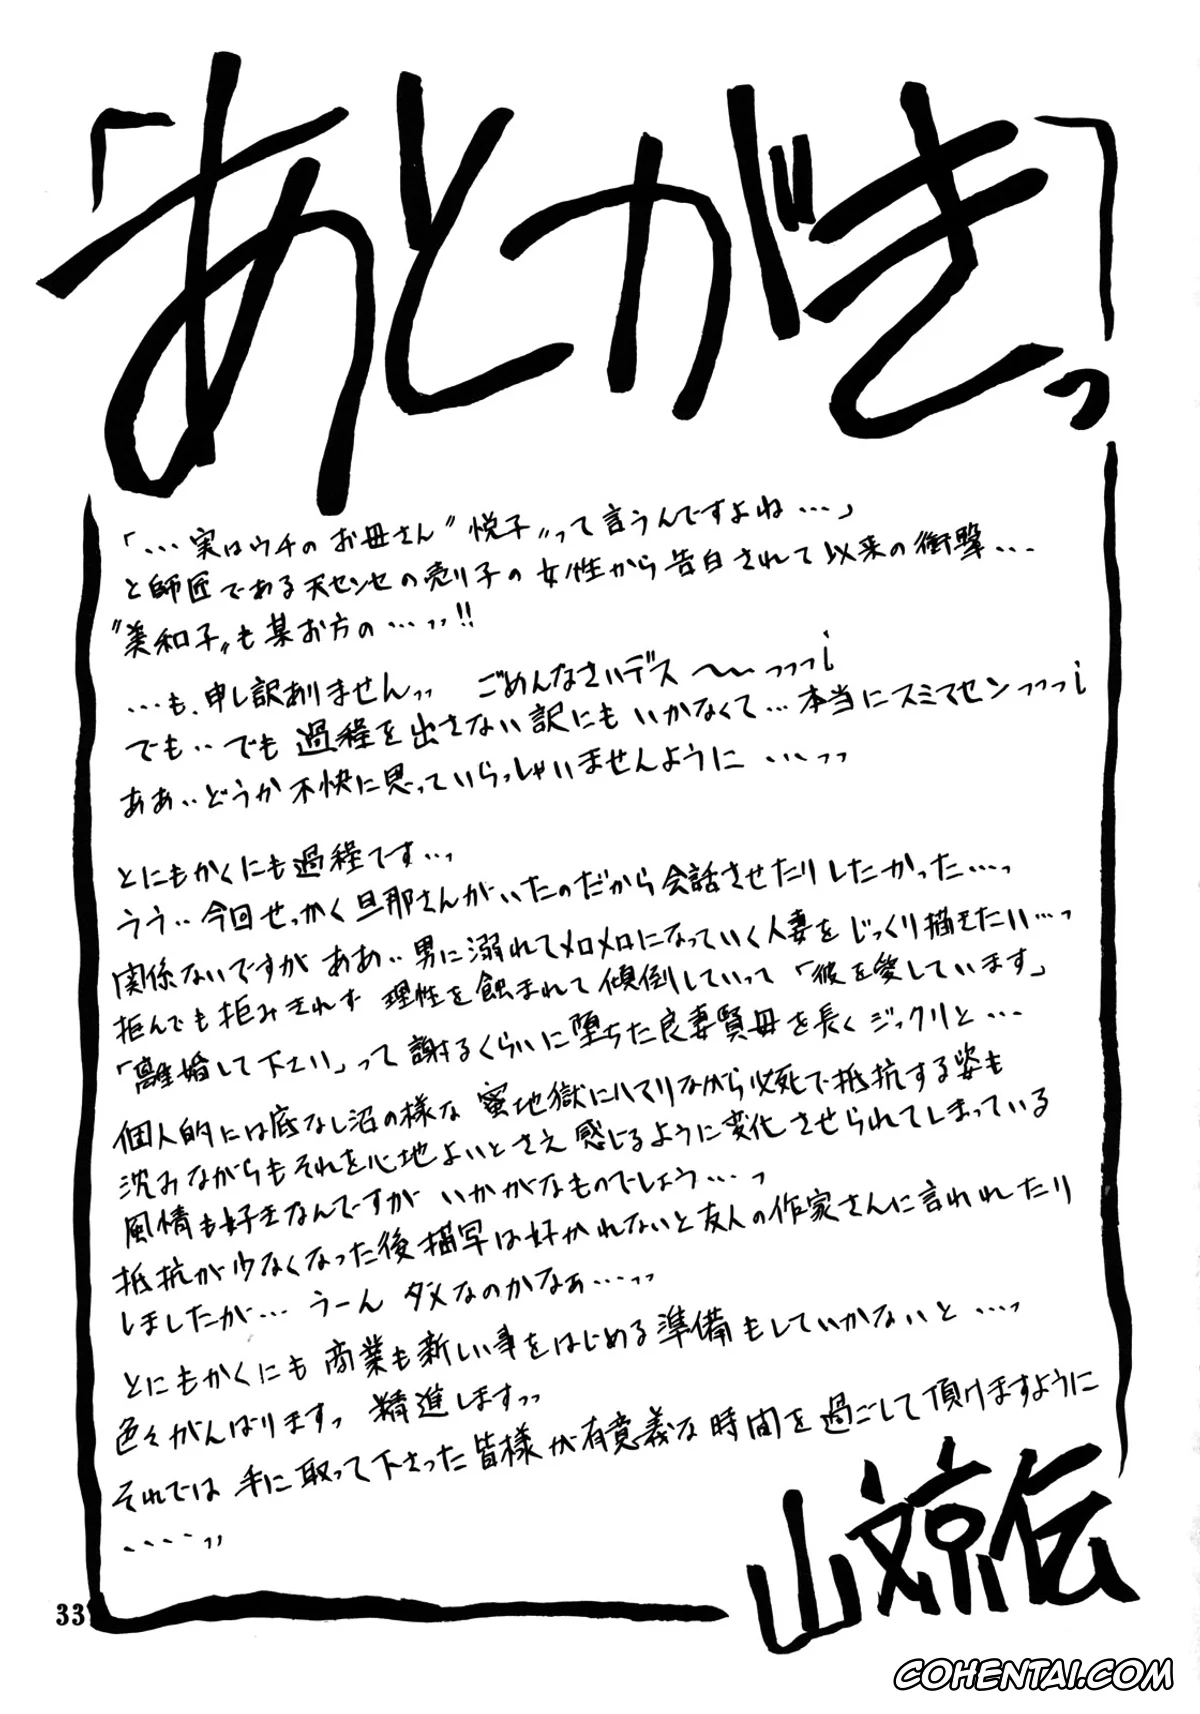 「あとがきっ」
「・・・実はウチのお母さん〝悦子〟って言うんですよね・・・」
と師匠である天センセの売り子の女性から告白されて以来の衝撃・・・
〝美和子〟も某お方の・・・ッッ!!
・・・も、申し訳ありませんッッ ごめんなさいデス〜〜っっっ!
でも・・でも過程を出さない訳にもいかなくて・・・本当にスミマセンっっっ!
ああ・・どうか不快に思っていらっしゃいませんように・・・っっ
とにもかくにも過程です・・っ
うう・・今回せっかく旦那さんがいたのだから会話させたりしたかった・・・っ
関係ないですがああ・・男に溺れてメロメロになっていく人妻をじっくり描きたい・・・っ
拒んでも拒みきれず理性を蝕まれて傾倒していって「彼を愛しています」
「離婚して下さい」って謝るくらいに堕ちた良妻賢母を長くジックリと・・・
個人的には底なし沼の様な蜜地獄にハマりながら必死で抵抗する姿も
沈みながらもそれを心地よいとさえ感じるように変化させられてしまっている
風情も好きなんですがいかがなものでしょう・・・っ
抵抗が少なくなった後描写は好かれないと友人の作家さんに言われたり
しましたが・・・うーんダメなのかなぁ・・・っっ
とにもかくにも商業も新しい事をはじめる準備もしていかないと・・・っ
色々がんばりますっ 精進しますっっ
それでは手に取って下さった皆様が有意義な時間を過ごして頂けますように
・・・・っっ
山文京伝
33
COHENTAI.COM